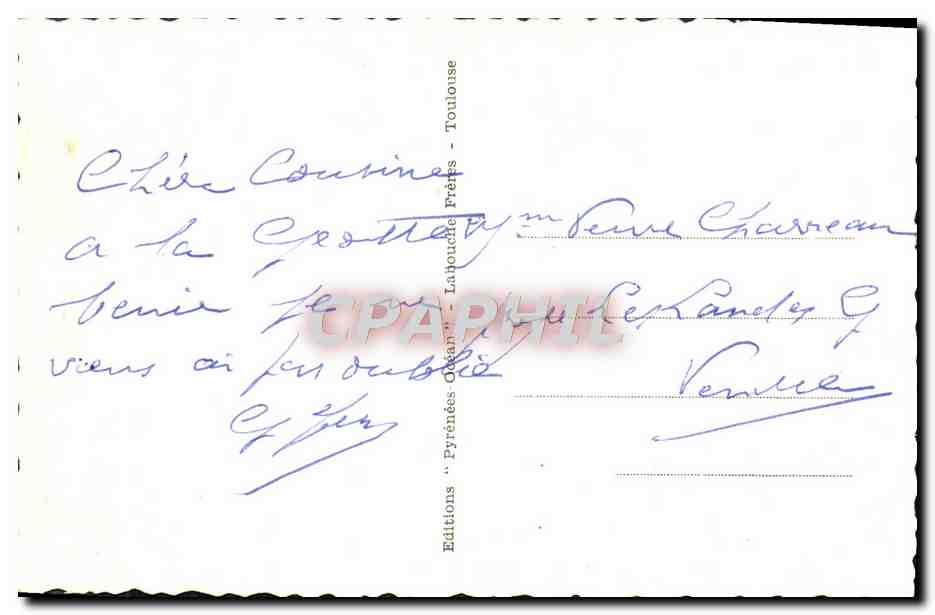 Chère Cousine
a la Grotte
benie je ne
vous ai pas oublié
Editions " Pyrénées-Océan " - Labouche Frères - Toulouse
Veuve Charreau
Les Landes G
Vendée
CPAPHIL